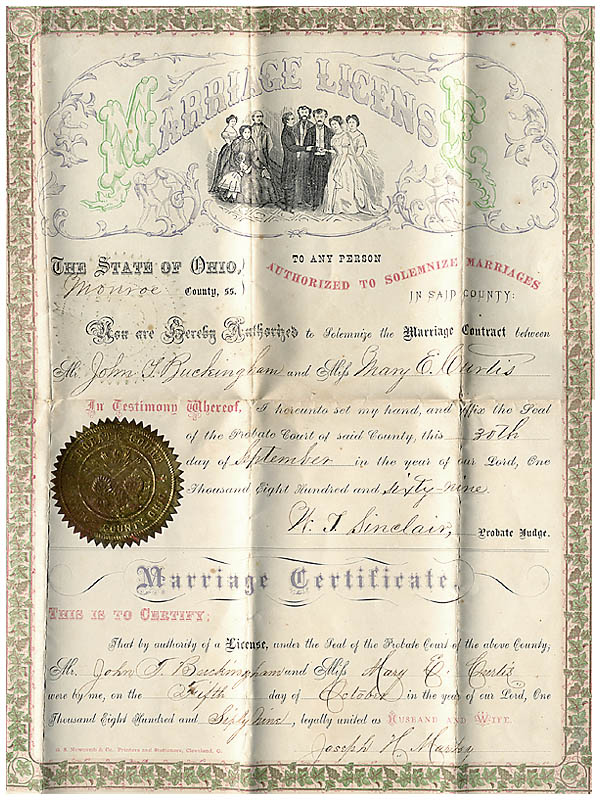 MARRIAGE LICENSE
THE STATE OF OHIO,
Monroe County, ss.
TO ANY PERSON
AUTHORIZED TO SOLEMNIZE MARRIAGES
IN SAID COUNTY:
You are Hereby Authorized to Solemnize the Marriage Contract between
Mr. John T. Buckingham and Miss Mary E. Curtis
In Testimony Whereof, I hereunto set my hand, and affix the Seal
of the Probate Court of said County, this 30th
day of September in the year of our Lord, One
Thousand Eight Hundred and Sixty-nine.
W. T. Sinclair, Probate Judge.
PROBATE COURT
COUNTY, OHIO
Marriage Certificate.
THIS IS TO CERTIFY:
That by authority of a License, under the Seal of the Probate Court of the above County,
Mr. John T. Buckingham and Miss Mary E. Curtis
were by me, on the Fifth day of October in the year of our Lord, One
Thousand Eight Hundred and Sixty Nine, legally united as HUSBAND AND WIFE.
Joseph H.
G. S. Newcomb & Co., Printers and Stationers, Cleveland, O.